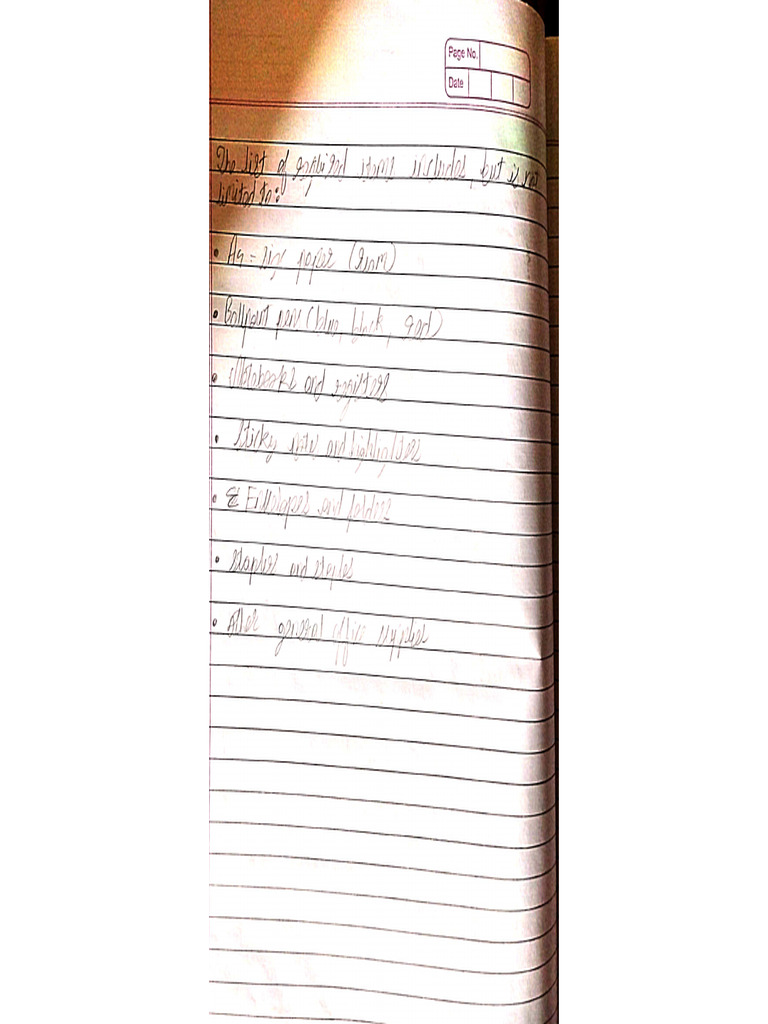 Page No.
Date
The list of required items includes, but is not
limited to:
• A4 - size paper (ream)
• Ballpoint pen (blue, black, red)
• Notebooks and registers
• Sticky notes and highlighters
• Envelopes and folders
• Stapler and staples
• Other general office supplies